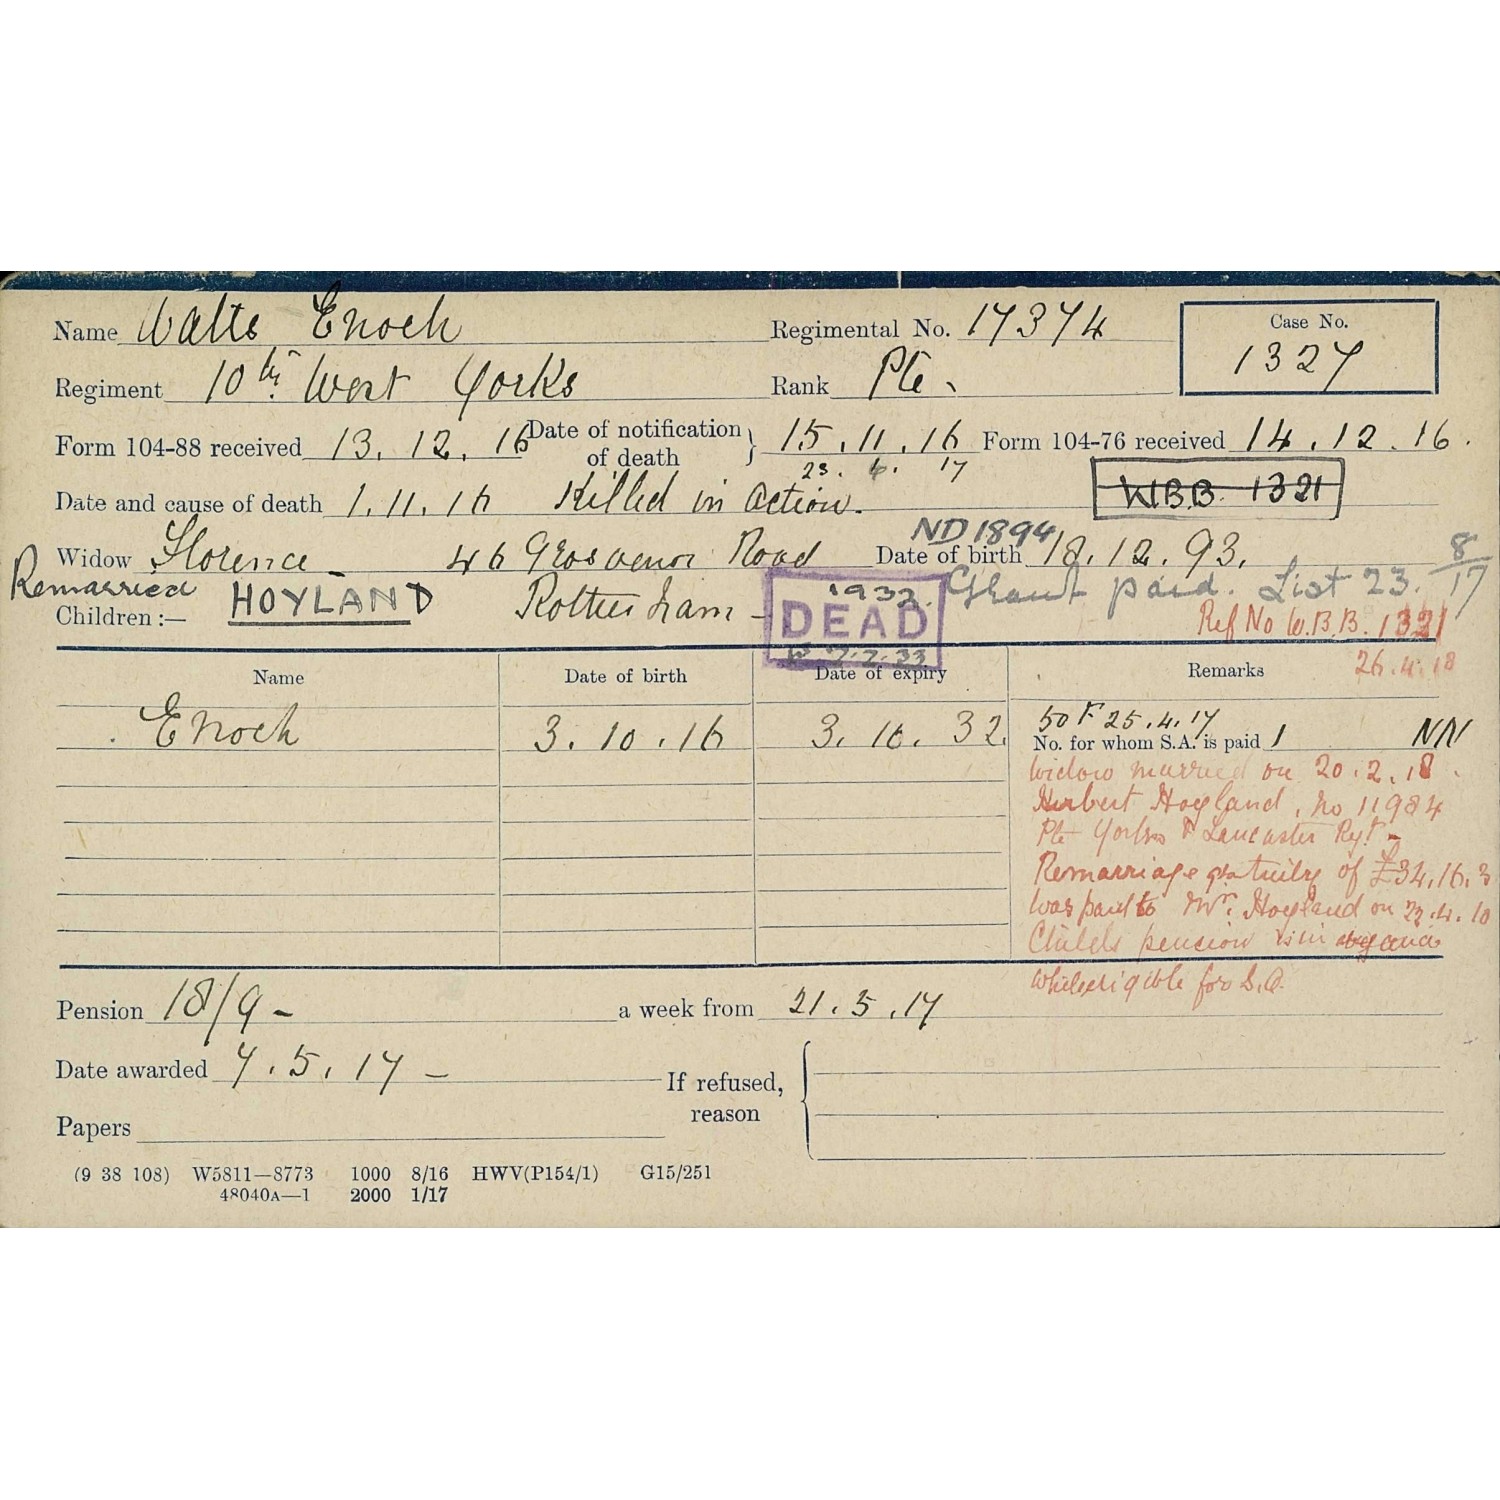 Name Watts Enoch Regimental No. 17374 Case No. 1327
Regiment 10th West Yorks Rank Pte
Form 104-88 received 13.12.16 Date of notification of death } 15.11.16 Form 104-76 received 14.12.16.
23.6.17
Date and cause of death 1.11.16 Killed in Action. W.B.B. 1321
ND 1894
Widow Florence 46 Grosvenor Road Date of birth 18.12.93.
Remarried HOYLAND Rotherham 1932. Grant paid. List 23. 8/17
Children :— DEAD Ref No W.B.B. 1321
7.2.33 26.4.18
Name Date of birth Date of expiry Remarks
Enoch 3.10.16 3.10.32. 50 F 25.4.17
No. for whom S.A. is paid 1 NN
Widow married on 20.2.18.
Herbert Hoyland, No 11984
Pte Yorks & Lancaster Regt -
Remarriage gratuity of £34.16.3
was paid to Mrs. Hoyland on 22.4.18
Child's pension
while eligible for S.A.
Pension 18/9 - a week from 21.5.17
Date awarded 7.5.17 - If refused, reason
Papers
(9 38 108) W5811—8773 1000 8/16 HWV(P154/1) G15/251
48040A—1 2000 1/17